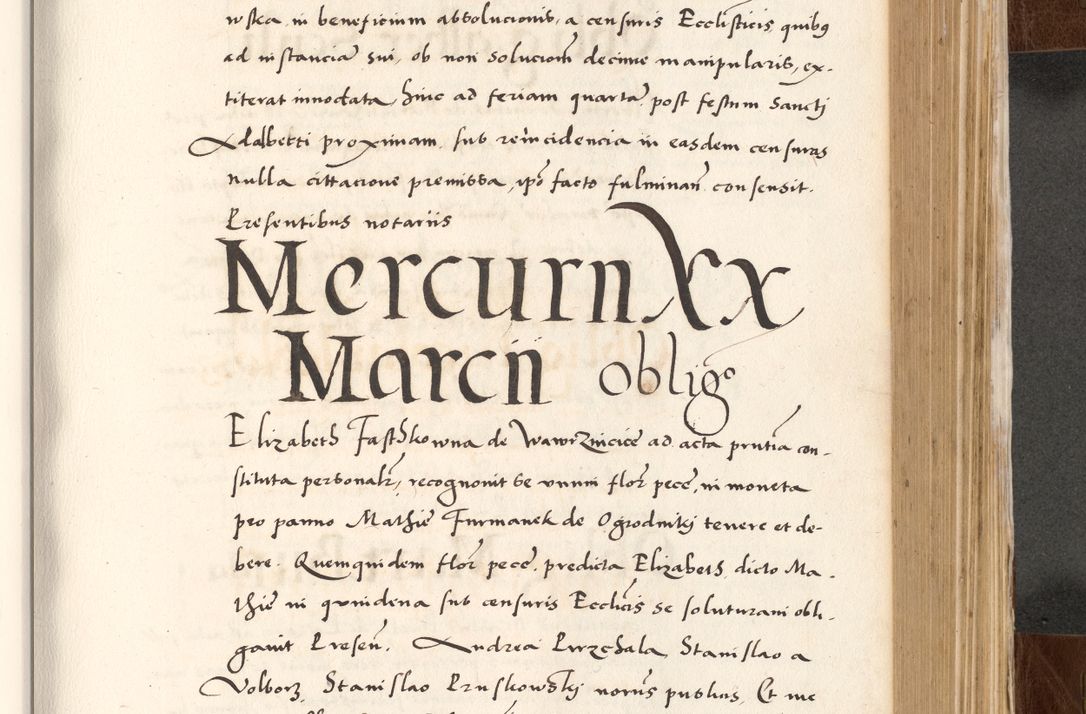 wska in beneficium absolucionis, a censuris Ecclisticis, quibus
ad instancia sui, ob non solucionem decime manipularis, ex-
titerat innodata, hinc ad feriam quarta post festum Sancti
Adalberti proximam, sub reincidencia in easdem censuras
nulla cittacione premissa, ipso facto fulminan consensit.
Presentibus notariis
Mercurii XX
Marcii oblig°
Elizabeth Fasthkowna de Wawrzincice ad acta prntia con-
stituta personalr, recognovit se unum flor pece, in moneta
pro panno Mathie Furmanek de Ogrodniky tenere et de-
bere. Quemquidem flor pece, predicta Elizabeth, dicto Ma-
thie in quindena sub censuris Ecclicis se soluturam obli-
gavit Presen. Andrea Przchala, Stanislao a
Volborz, Stanislao Pruskowsky noriis publicis, Et me